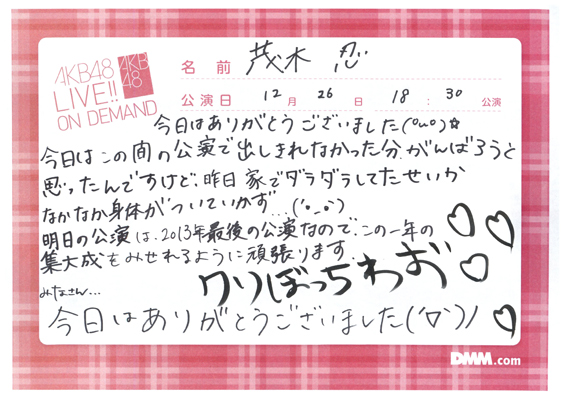 AKB48
LIVE!!
ON DEMAND
AKB
48
名前 茂木 忍
公演日 12月 26日 18:30 公演
今日はありがとうございました(^o^)☆
今日はこの間の公演で出しきれなかった分、がんばろうと
思ったんですけど、昨日家でダラダラしてたせいか
なかなか身体がついていかず…('・_・`)
明日の公演は、2013年最後の公演なので、この一年の
集大成をみせれるように頑張ります。
クリぼっちわお ♡♡♡♡
みなさん...
今日はありがとうございました('▽`)ノ
DMM.com